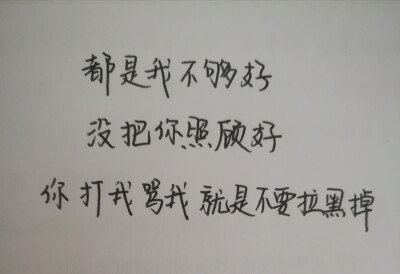 都是我不够好
没把你照顾好
你打我骂我就是不要拉黑掉